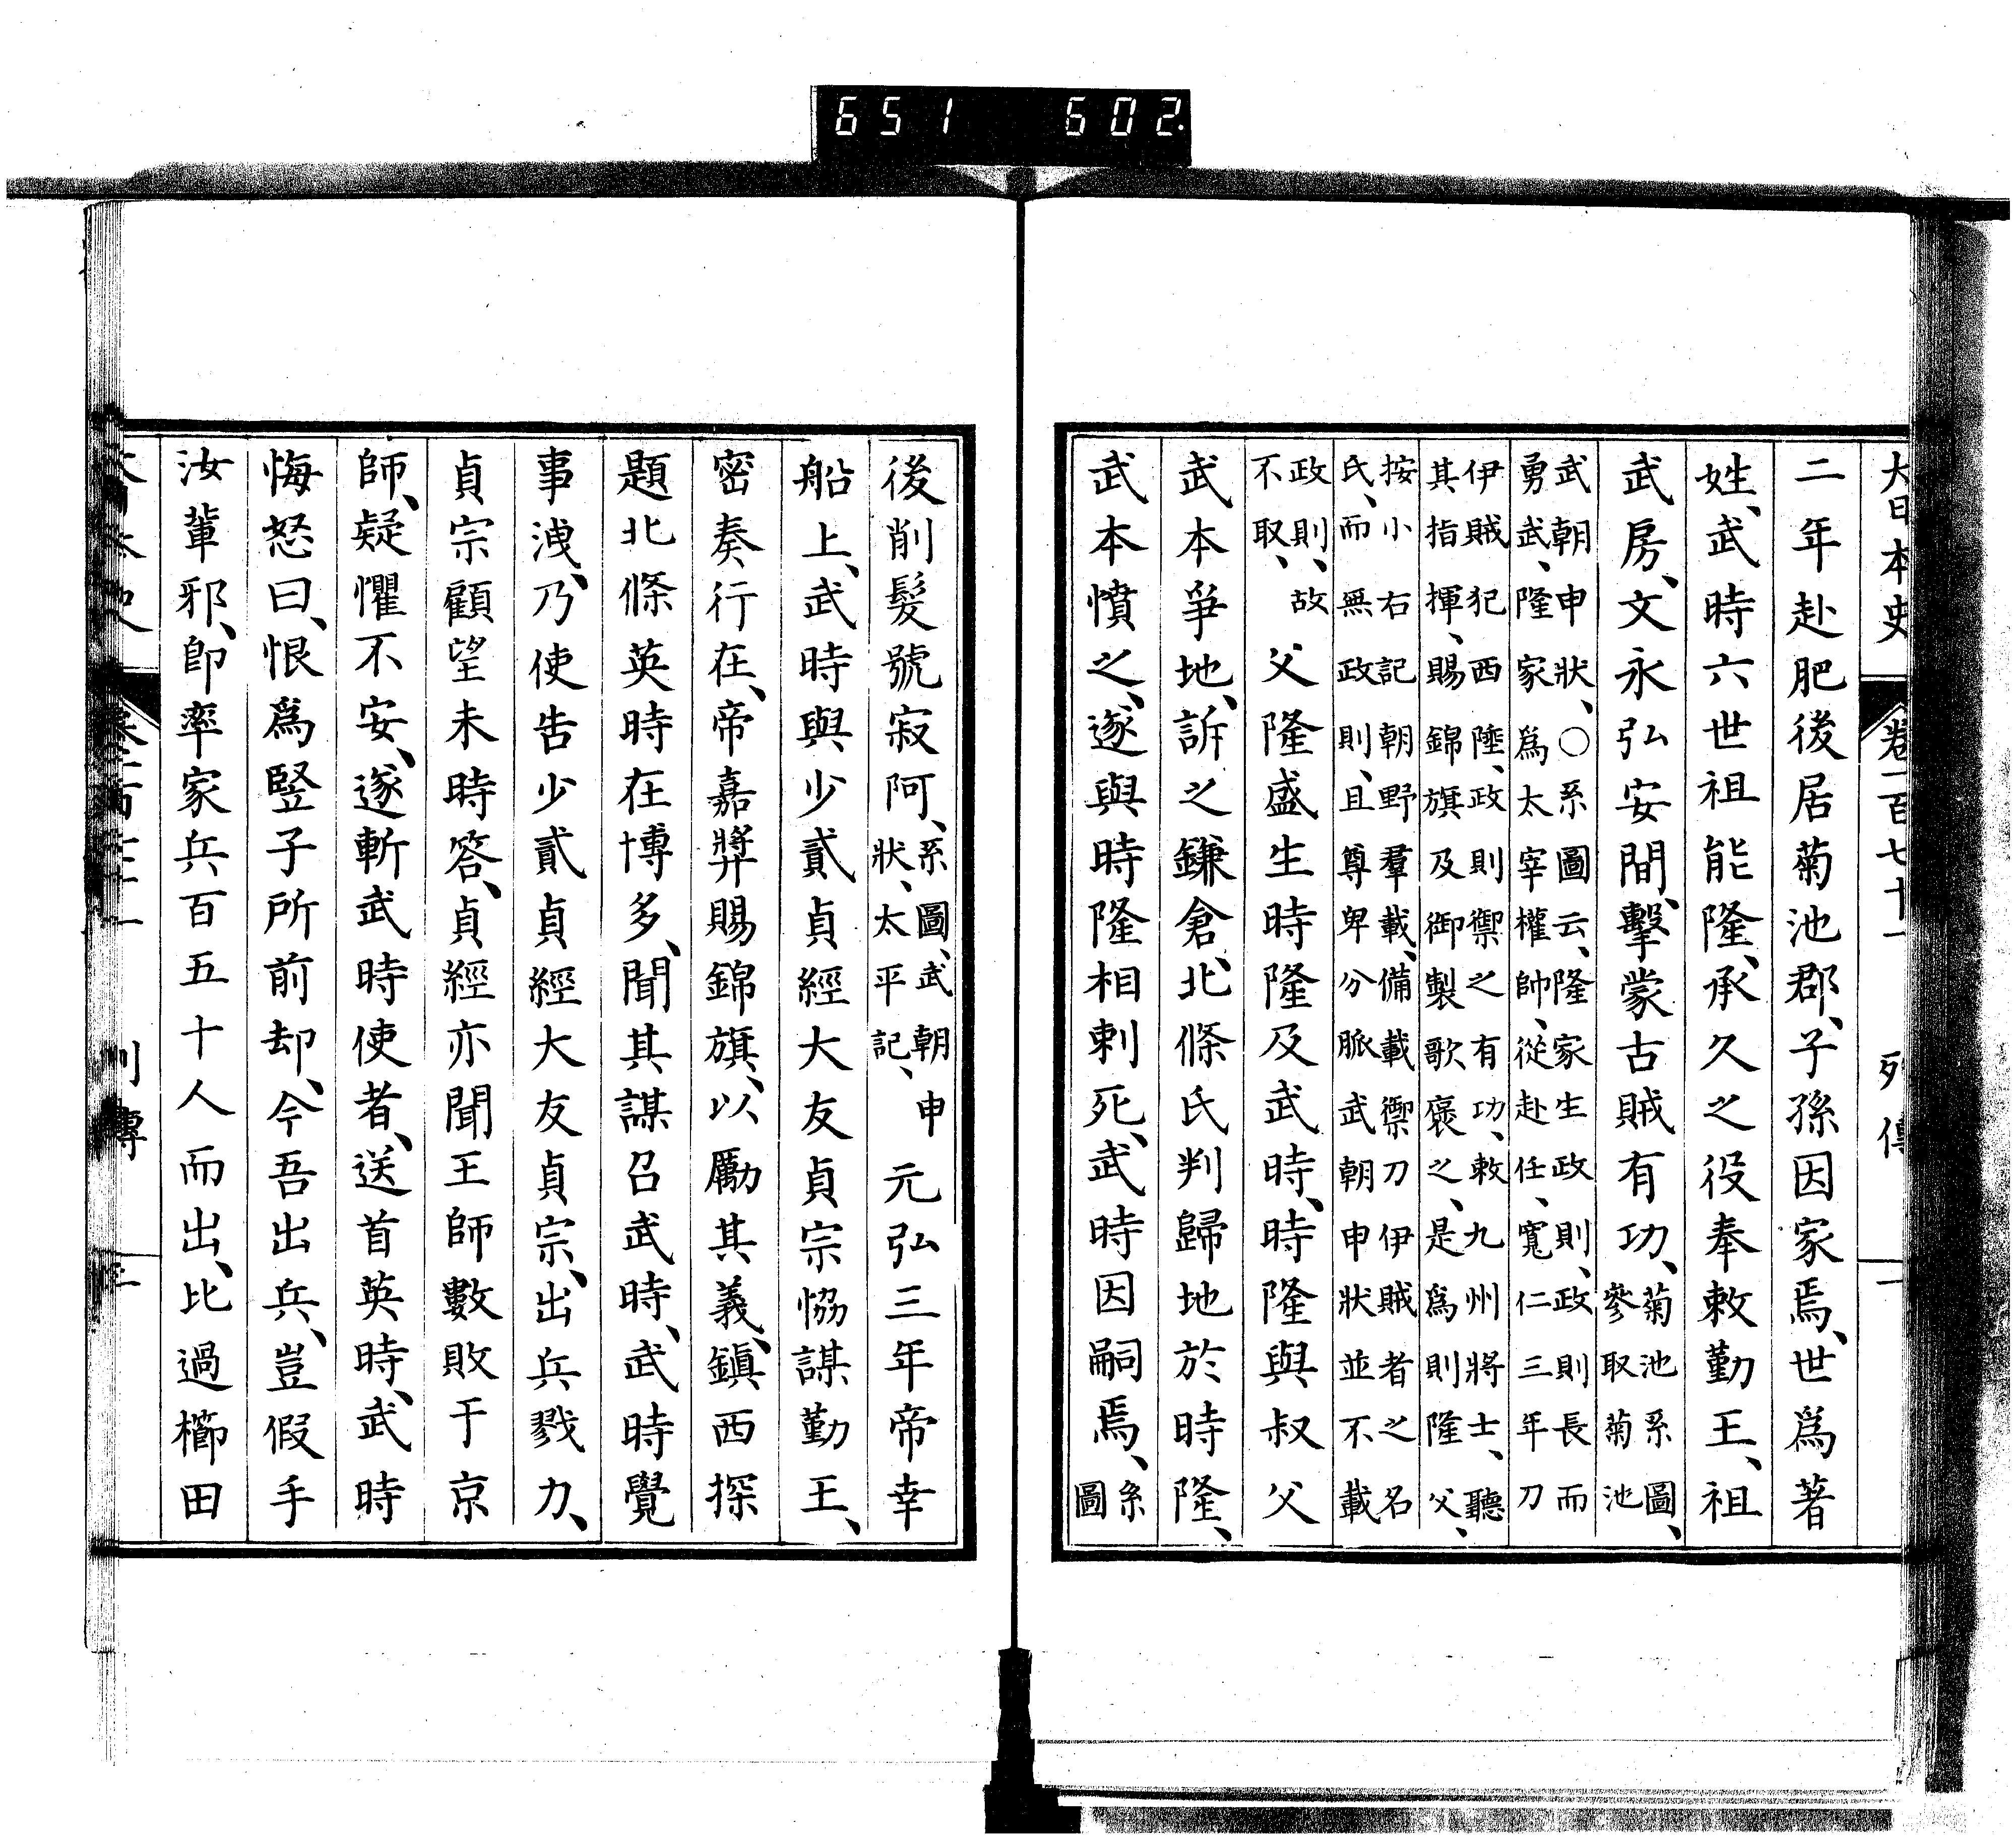 651 602.
大日本史 卷一百七十一 列傳 一
二年赴肥後居菊池郡、子孫因家焉、世爲著
姓、武時六世祖能隆、承久之役奉敕勤王、祖
武房、文永弘安間、擊蒙古賊有功、菊池系圖、參取菊池
武朝申狀、○系圖云、隆家生政則、政則長而
勇武、隆家爲太宰權帥、從赴任、寬仁三年刀
伊賊犯西陲、政則禦之有功、敕九州將士、聽
其指揮、賜錦旗及御製歌褒之、是爲則隆父、
按小右記朝野羣載、備載禦刀伊賊者之名
氏、而無政則、且尊卑分脈武朝申狀並不載
政則、故
不取、
父隆盛生時隆及武時、時隆與叔父
武本爭地、訴之鎌倉、北條氏判歸地於時隆、
武本憤之、遂與時隆相刺死、武時因嗣焉、系圖
後削髮號寂阿、系圖、武朝申狀、太平記、元弘三年帝幸
船上、武時與少貳貞經大友貞宗恊謀勤王、
密奏行在、帝嘉奬賜錦旗、以勵其義、鎭西探
題北條英時在博多、聞其謀召武時、武時覺
事洩、乃使告少貳貞經大友貞宗、出兵戮力、
貞宗顧望未時答、貞經亦聞王師數敗于京
師、疑懼不安、遂斬武時使者、送首英時、武時
悔怒曰、恨爲竪子所前却、今吾出兵、豈假手
汝輩邪、卽率家兵百五十人而出、比過櫛田
列傳